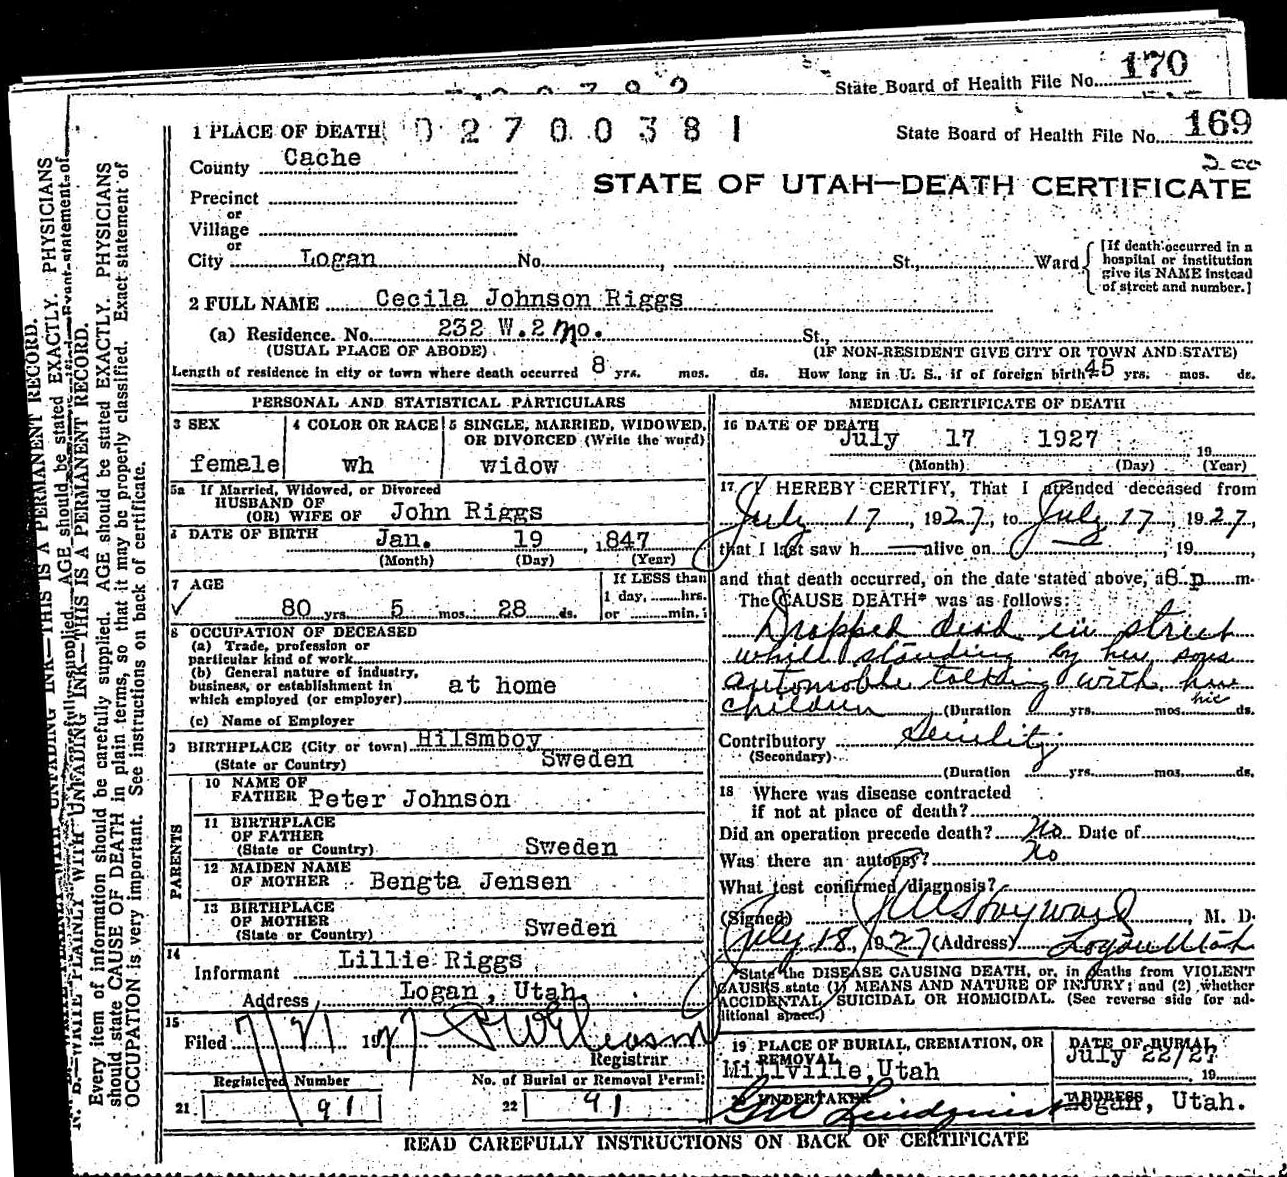 State Board of Health File No. 170
1 PLACE OF DEATH 02700381
State Board of Health File No. 169
County Cache
STATE OF UTAH—DEATH CERTIFICATE
Precinct
or
Village
or
City Logan No. , St., Ward
[If death occurred in a hospital or institution give its NAME instead of street and number.]
2 FULL NAME Cecila Johnson Riggs
(a) Residence. No. 232 W. 2 No. St.,
(USUAL PLACE OF ABODE) (IF NON-RESIDENT GIVE CITY OR TOWN AND STATE)
Length of residence in city or town where death occurred 8 yrs. mos. ds. How long in U. S., if of foreign birth 45 yrs. mos. ds.
PERSONAL AND STATISTICAL PARTICULARS
3 SEX female
4 COLOR OR RACE wh
5 SINGLE, MARRIED, WIDOWED, OR DIVORCED (Write the word) widow
5a If Married, Widowed, or Divorced
HUSBAND OF
(OR) WIFE OF John Riggs
DATE OF BIRTH Jan. 19, 1847
(Month) (Day) (Year)
7 AGE
80 yrs. 5 mos. 28 ds.
If LESS than 1 day, hrs. or min.
8 OCCUPATION OF DECEASED
(a) Trade, profession or
particular kind of work
(b) General nature of industry,
business, or establishment in
which employed (or employer) at home
(c) Name of Employer
9 BIRTHPLACE (City or town) Hilsmboy
(State or Country) Sweden
PARENTS
10 NAME OF
FATHER Peter Johnson
11 BIRTHPLACE
OF FATHER
(State or Country) Sweden
12 MAIDEN NAME
OF MOTHER Bengta Jensen
13 BIRTHPLACE
OF MOTHER
(State or Country) Sweden
14
Informant Lillie Riggs
Address Logan, Utah.
15
Filed 7/21 1927
Registrar
Registered Number
21 91
No. of Burial or Removal Permit
22 91
MEDICAL CERTIFICATE OF DEATH
16 DATE OF DEATH
July 17 1927 , 19
(Month) (Day) (Year)
17 I HEREBY CERTIFY, That I attended deceased from
July 17, 1927, to July 17, 1927,
that I last saw h alive on , 19 ,
and that death occurred, on the date stated above, at 8 p m.
The CAUSE DEATH* was as follows:
Dropped dead in street
while standing by her sons
automobile talking with her
children (Duration yrs. mos. ds.
Contributory Senility
(Secondary)
(Duration yrs. mos. ds.
18 Where was disease contracted
if not at place of death?
Did an operation precede death? No Date of
Was there an autopsy? No
What test confirmed diagnosis?
(Signed) Hayward, M. D.
July 18, 1927 (Address) Logan Utah
*State the DISEASE CAUSING DEATH, or, in deaths from VIOLENT
CAUSES, state (1) MEANS AND NATURE OF INJURY; and (2) whether
ACCIDENTAL, SUICIDAL OR HOMICIDAL. (See reverse side for ad-
ditional space.)
19 PLACE OF BURIAL, CREMATION, OR
REMOVAL
Millville, Utah
DATE OF BURIAL
July 22/27
, 19
20 UNDERTAKER
Lindquist
ADDRESS
Logan, Utah.
READ CAREFULLY INSTRUCTIONS ON BACK OF CERTIFICATE
N. B.—WRITE PLAINLY WITH UNFADING INK—THIS IS A PERMANENT RECORD.
Every item of information should be carefully supplied. AGE should be stated EXACTLY. PHYSICIANS
should state CAUSE OF DEATH in plain terms, so that it may be properly classified. Exact statement of
OCCUPATION is very important. See instructions on back of certificate.